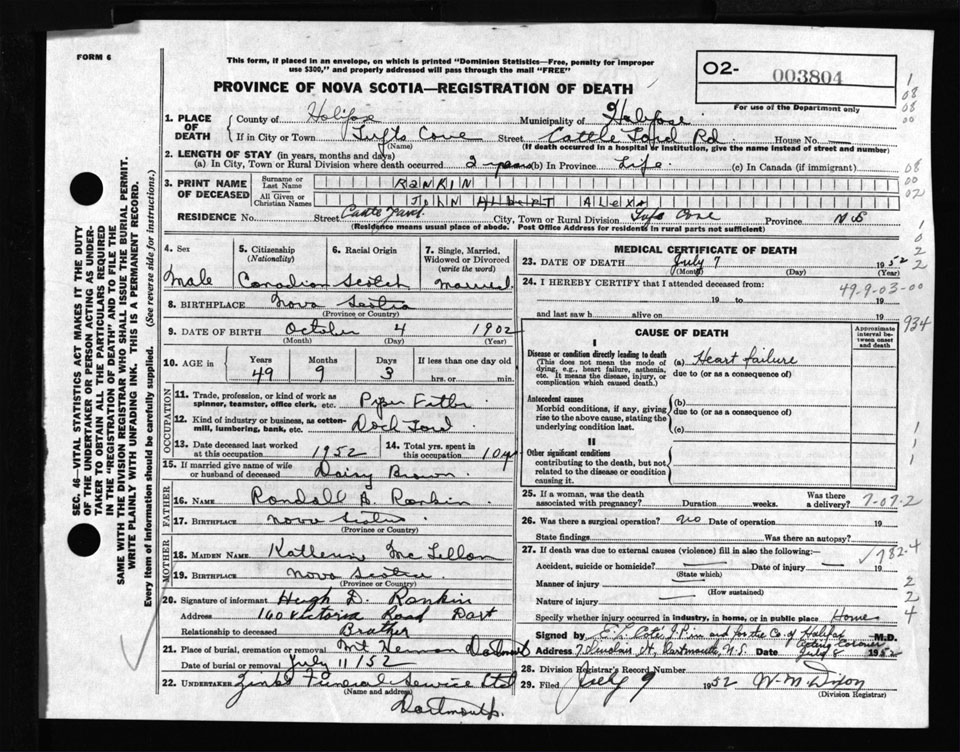 FORM 6
This form, if placed in an envelope, on which is printed "Dominion Statistics—Free, penalty for improper
use $300," and properly addressed will pass through the mail "FREE"
PROVINCE OF NOVA SCOTIA—REGISTRATION OF DEATH
O2- 003804
For use of the Department only
1. PLACE OF DEATH
County of Halifax Municipality of Halifax
If in City or Town Tufts Cove Street Rd House No. —
(Name) (If death occurred in a hospital or institution, give the name instead of street and number)
2. LENGTH OF STAY (in years, months and days)
(a) In City, Town or Rural Division where death occurred 2 years (b) In Province Life (c) In Canada (if immigrant)
3. PRINT NAME OF DECEASED
Surname or Last Name RANKIN
All Given or Christian Names JOHN ALBERT ALEX
RESIDENCE No. Street City, Town or Rural Division Tufts Cove Province N S
(Residence means usual place of abode. Post Office Address for residents in rural parts not sufficient)
4. Sex Male
5. Citizenship (Nationality) Canadian
6. Racial Origin Scotch
7. Single, Married, Widowed or Divorced (write the word) Married
8. BIRTHPLACE Nova Scotia
(Province or Country)
9. DATE OF BIRTH October 4 1902
(Month) (Day) (Year)
10. AGE in Years 49 Months 9 Days 3 If less than one day old hrs. or min.
OCCUPATION
11. Trade, profession, or kind of work as spinner, teamster, office clerk, etc. Pipe Fitter
12. Kind of industry or business, as cotton-mill, lumbering, bank, etc. Dock Yard
13. Date deceased last worked at this occupation 1952
14. Total yrs. spent in this occupation
15. If married give name of wife or husband of deceased Daisy Brown
FATHER
16. NAME Randall A. Rankin
17. BIRTHPLACE Nova Scotia
(Province or Country)
MOTHER
18. MAIDEN NAME Katherine McLellan
19. BIRTHPLACE Nova Scotia
(Province or Country)
20. Signature of informant Hugh D. Rankin
Address 160 Victoria Road Dart
Relationship to deceased Brother
21. Place of burial, cremation or removal Mt Hermon Dartmouth
Date of burial or removal July 11/52
22. UNDERTAKER Zinks Funeral Service Ltd
(Name and address)
Dartmouth.
MEDICAL CERTIFICATE OF DEATH
23. DATE OF DEATH July 7 1952
(Month) (Day) (Year)
24. I HEREBY CERTIFY that I attended deceased from:
19 to 19
and last saw h alive on 19
49-9-03-00
934
CAUSE OF DEATH
Approximate interval between onset and death
I
Disease or condition directly leading to death
(This does not mean the mode of dying, e.g., heart failure, asthenia, etc. It means the disease, injury, or complication which caused death.)
(a) Heart failure
due to (or as a consequence of)
Antecedent causes
Morbid conditions, if any, giving rise to the above cause, stating the underlying condition last.
(b)
due to (or as a consequence of)
(c)
II
Other significant conditions
contributing to the death, but not related to the disease or condition causing it.
25. If a woman, was the death associated with pregnancy? Duration weeks. Was there a delivery?
7-07-2
26. Was there a surgical operation? no Date of operation 19
State findings Was there an autopsy?
27. If death was due to external causes (violence) fill in also the following:—
782-4
Accident, suicide or homicide? — Date of injury — 19
(State which)
Manner of injury
(How sustained)
Nature of injury
Specify whether injury occurred in industry, in home, or in public place Home
Signed by E. L. Cote, J.P. in and for the Co. of Halifax M.D.
Acting Coroner
Address Dartmouth, N.S. Date July 8 1952
28. Division Registrar's Record Number
29. Filed July 9 1952 W. M. Dixon
(Division Registrar)
SEC. 46—VITAL STATISTICS ACT MAKES IT THE DUTY
OF THE UNDERTAKER OR PERSON ACTING AS UNDER-
TAKER TO OBTAIN ALL THE PARTICULARS REQUIRED
IN THE "REGISTRATION OF DEATH" AND TO FILE THE
SAME WITH THE DIVISION REGISTRAR WHO SHALL ISSUE THE BURIAL PERMIT.
WRITE PLAINLY WITH UNFADING INK. THIS IS A PERMANENT RECORD.
Every item of information should be carefully supplied. (See reverse side for instructions.)